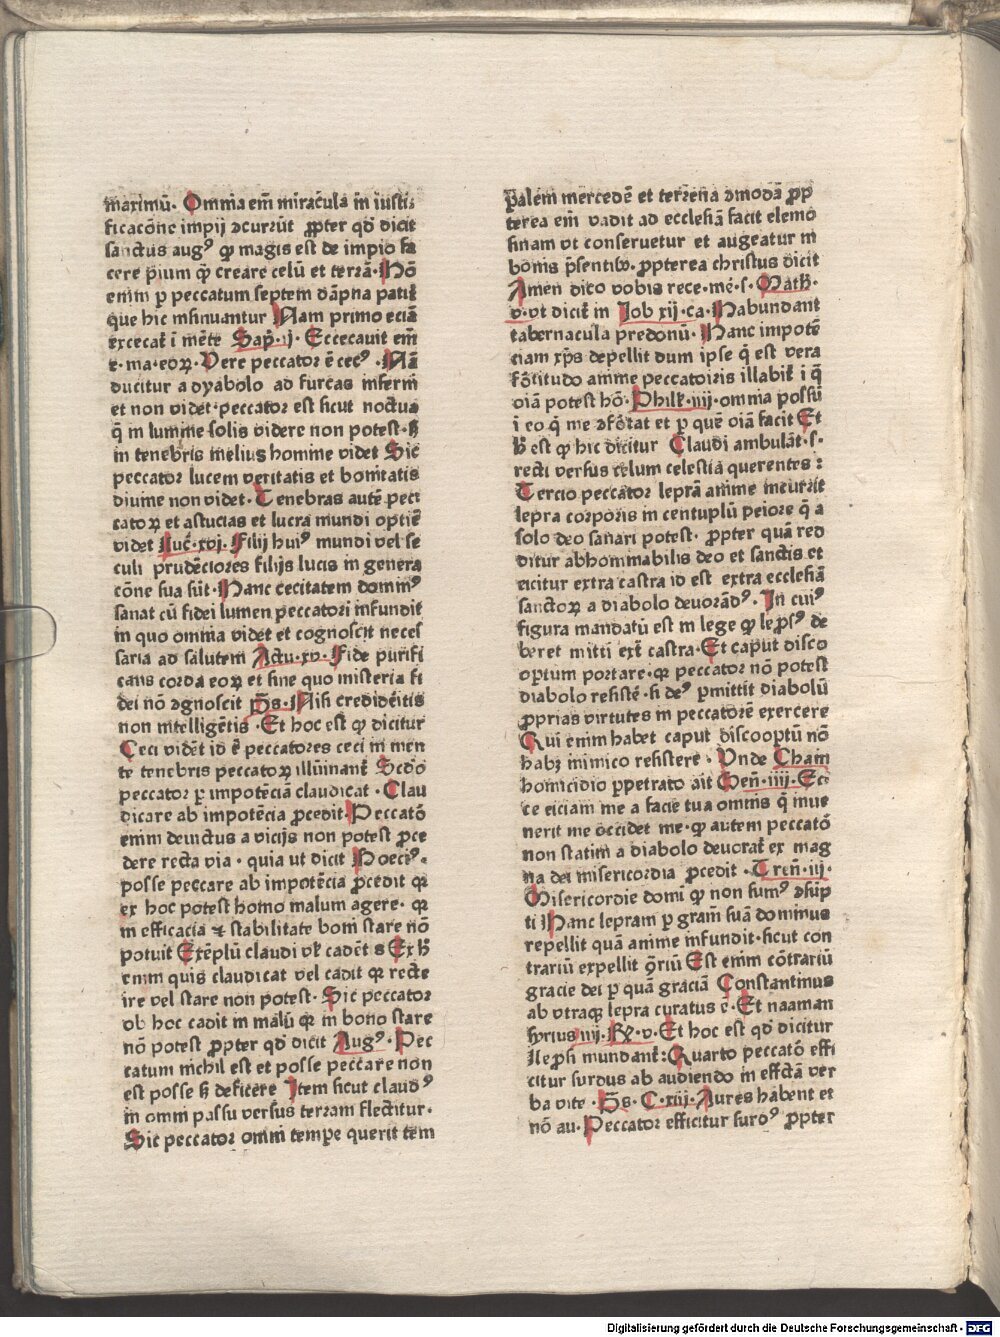 maximū. Omnia em̄ miracula in iusti⸗
ficacōne impij ɔcurrūt ꝓpter qd̄ dicit
sanctus augꝰ ꝙ magis est de impio fa
cere pium ꝙ̄ creare celū et terrā. Nō
enim ꝑ peccatum septem dāpna patit᷑
que hic insinuantur Nam primo eciā
excecat᷑ ī mēte Sap̄. ij. Excecauit em̄
e. ma. eoꝝ. Vere peccator ē cecꝰ. Nā
ducitur a dyabolo ad furcas inferni
et non videt. peccator est sicut noctua
q̄ in lumine solis videre non potest. sꝫ
in tenebris melius homine videt Sic
peccator lucem veritatis et bonitatis
diuine non videt. Tenebras autē pecc
catoꝝ et astucias et lucra mundi optie
videt Luc̄. xvj. Filij huiꝰ mundi vel se
culi prudēciores filijs lucis in genera
cōne sua sūt. Hanc cecitatem dominꝰ
sanat cū fidei lumen peccatori infundit
in quo omnia videt et cognoscit neces
saria ad salutem Actu. xv. Fide purifi
cans corda eoꝝ et sine quo misteria fi
dei nō ɔgnoscit p̄s. Nisi credidēitis
non intelligētis. Et hoc est ꝙ dicitur
Ceci vidēt id ē peccatores ceci in men
te tenebris peccatoꝝ illūinant᷑ Scd̄o
peccator ꝑ impotēciā claudicat. Clau
dicare ab impotēcia ꝓcedit. Peccatō
enim deuictus a vicijs non potest ꝓce
dere recta via. quia ut dicit Boeciꝰ.
posse peccare ab impotēcia ꝓcedit qꝛ
ex hoc potest homo malum agere. qꝛ
in efficacia et stabilitate boni stare nō
potuit Exēplū claudi vl᷑ cadētis Ex hͦ
enim quis claudicat vel cadit qꝛ recte
ire vel stare non potest. Sic peccator
ob hoc cadit in malū qꝛ in bono stare
nō potest ꝓpter qd̄ dicit Augꝰ. Pec
catum nichil est et posse peccare non
est posse sꝫ deficere Item sicut claudꝰ
in omni passu versus terram flectitur.
Sic peccator omni tempe querit tem
palem mercedē et terrena ɔmoda ꝓp
terea em̄ vadit ad ecclesiā facit elemo
sinam vt conseruetur et augeatur in
bonis p̄sentibꝰ. ꝓpterea christus dicit
Amen dico vobis rece. mē. s. Math̄.
v. vt dicit᷑ in Job xij. ca. Habundant
tabernacula predonū. Hanc impotē
ciam xp̄s depellit dum ipse q̄ est vera
fōtitudo anime peccatoris illabit᷑ i q̄
oīā potest hō. Phil᷑. iiij. omnia possū
i eo q̄ me ɔfōtat et ꝑ quē oīā facit Et
hͦ est ꝙ hic dicitur Claudi ambulāt. s.
recti versus celum celestiā querentes:
Tercio peccator leprā anime incurrit
lepra corporis in centuplū peiorē q̄ a
solo deo sanari potest. ꝓpter quā red
ditur abhommabilis deo et sanctis et
eicitur extra castra id est extra ecclesiā
sanctoꝝ a diabolo deuorādꝰ. In cuiꝰ
figura mandatū est in lege ꝙ lepsꝰ de
beret mitti ext᷑ castra. Et caput disco
optum portare. qꝛ peccator nō potest
diabolo resistē. si deꝰ ꝑmittit diabolū
ꝓprias virtutes in peccatorē exercere
Qui enim habet caput discooptū nō
habꝫ inimico resistere. Vnde Cham
homicidio ꝑpetrato ait Gen̄. iiij. Ec
ce eiciam me a facie tua omnis q̄ inue
nerit me occidet me. ꝙ autem peccatō
non statim a diabolo deuorat᷑ ex mag
na dei misericordia ꝓcedit. Tren̄. iij.
Misericordie domī ꝙ non sumꝰ ɔsūp
ti Hanc lepram ꝑ gram̄ suā dominus
repellit quā anime infundit. sicut con
trariū expellit ɔ̄riū Est enim cōtrariū
gracie dei ꝑ quā graciā Constantinus
ab vtraqꝫ lepra curatus ē. Et naaman
syrius iiij. Rꝝ. v. Et hoc est qd̄ dicitur
leprosi mundant᷑: Quarto peccatō effi
citur surdus ab audiendo in effectā ver
ba vite. p̄s. C. xiij. Aures habent et
nō au. Peccator efficitur surdꝰ ꝓpter
Digitalisierung gefördert durch die Deutsche Forschungsgemeinschaft - DFG